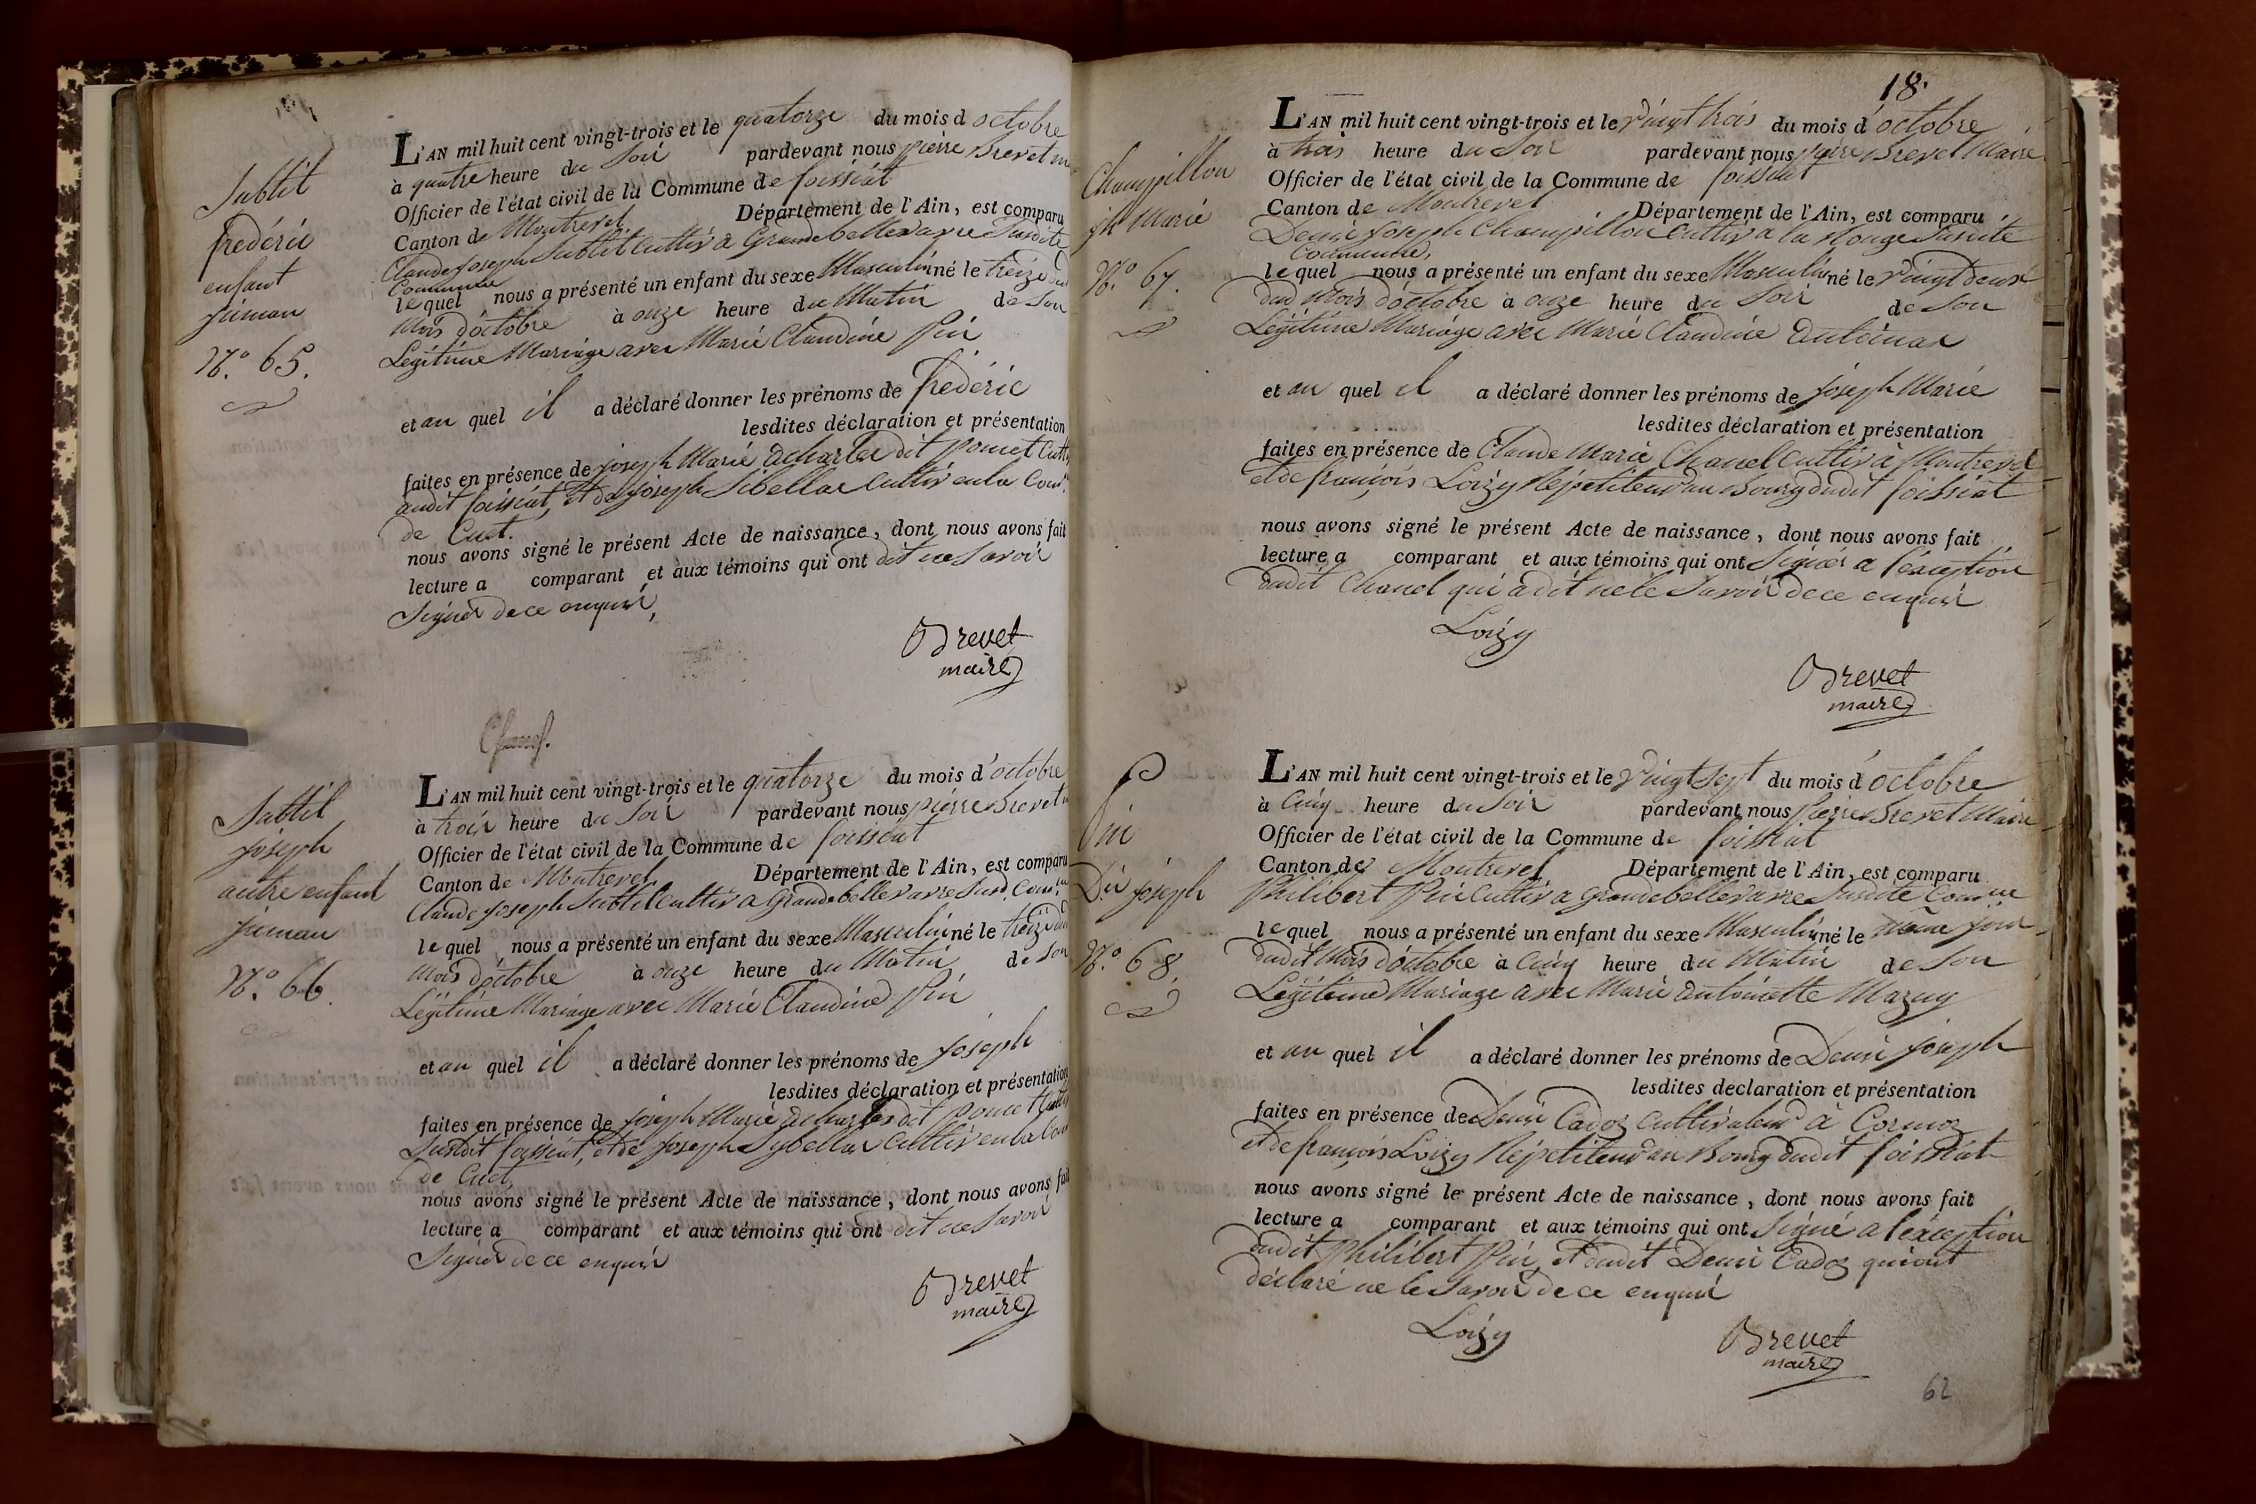 Subtil
frédéric
enfant
jumeau
N.o 65.
L'AN mil huit cent vingt-trois et le quatorze du mois d octobre
à quatre heure du Soir pardevant nous pierre Brevet
Officier de l'état civil de la Commune de foissiat
Canton de Montrevel Département de l'Ain, est comparu
Claude Joseph Subtil Cultiv a Grandebellevavre Susdite
Commune
lequel nous a présenté un enfant du sexe Masculin né le treize dud
mois d'octobre à onze heure du Matin de Son
Légitime Mariage avec Marie Claudine Pin
et au quel il a déclaré donner les prénoms de frédéric
lesdites déclaration et présentation
faites en présence de joseph Marie dit poncet Cultiv
audit foissiat, et de joseph Sibellas Cultiv en la Com.
de Cuet.
nous avons signé le présent Acte de naissance, dont nous avons fait
lecture a comparant et aux témoins qui ont dit ne Savoir
Signer de ce enquis,
Brevet
maire
Subtil
joseph
autre enfant
jumeau
N.o 66.
L'AN mil huit cent vingt-trois et le quatorze du mois d'octobre
à trois heure du Soir pardevant nous pierre Brevet
Officier de l'état civil de la Commune de foissiat
Canton de Montrevel Département de l'Ain, est comparu
Claude Joseph Subtil Cultiv a Grandebellevavre Susd. Com.
lequel nous a présenté un enfant du sexe Masculin né le treize dud
mois d'octobre à onze heure du Matin de Son
Légitime Mariage avec Marie Claudine Pin
et au quel il a déclaré donner les prénoms de joseph
lesdites déclaration et présentation
faites en présence de joseph Marie dit poncet Cultiv
Susdit foissiat, et de joseph Sybellas Cultiv en la Com
de Cuet,
nous avons signé le présent Acte de naissance, dont nous avons fait
lecture a comparant et aux témoins qui ont dit ne Savoir
Signer de ce enquis
Brevet
maire
18.
Champillon
jh Marie
N.o 67.
L'AN mil huit cent vingt-trois et le vingt trois du mois d'octobre
à trois heure du Soir pardevant nous pierre Brevet Maire
Officier de l'état civil de la Commune de foissiat
Canton de Montrevel Département de l'Ain, est comparu
Denis Joseph Champillon Cultiv a la Rouge Susdite
Commune,
lequel nous a présenté un enfant du sexe Masculin né le vingt deux
dud mois d'octobre à onze heure du Soir de Son
Légitime Mariage avec Marie Claudine
et au quel il a déclaré donner les prénoms de joseph Marie
lesdites déclaration et présentation
faites en présence de Claude Marie Chanel Cultiv à Montrevel
et de françois Loizy Répétiteur au Bourg dudit foissiat
nous avons signé le présent Acte de naissance, dont nous avons fait
lecture a comparant et aux témoins qui ont Signés a l'exception
dudit Chanel qui a dit ne le Savoir de ce enquis
Loizy
Brevet
maire
Pin
Dis joseph
N.o 68.
L'AN mil huit cent vingt-trois et le vingt Sept du mois d'octobre
à Cinq heure du Soir pardevant nous pierre Brevet Maire
Officier de l'état civil de la Commune de foissiat
Canton de Montrevel Département de l'Ain, est comparu
Philibert Pin Cultiv a Grandebellevavre Susdite Com.ne
lequel nous a présenté un enfant du sexe Masculin né le même jour
dudit Mois d'octobre à Cinq heure du Matin de Son
Légitime Mariage avec Marie antoinette Mazuy
et au quel il a déclaré donner les prénoms de Denis joseph
lesdites declaration et présentation
faites en présence de Denis Cadoz Cultivateur à Cormoz
et de françois Loizy Répétiteur au Bourg dudit foissiat
nous avons signé le présent Acte de naissance, dont nous avons fait
lecture a comparant et aux témoins qui ont Signé a l'exception
dudit Philibert Pin, et dudit Denis Cadoz qui ont
déclaré ne le Savoir de ce enquis
Loizy
Brevet
maire
62